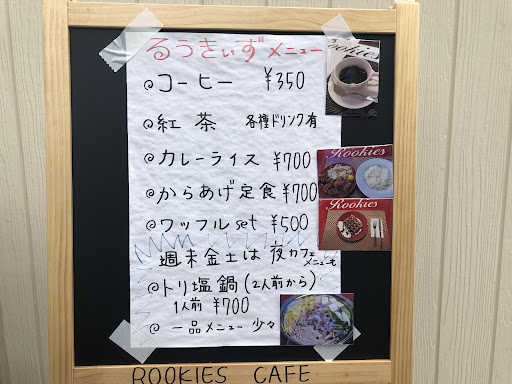 るうきぃず メニュー
◎コーヒー ¥350
◎紅茶 各種ドリンク有
◎カレーライス ¥700
◎からあげ定食 ¥700
◎ワッフルset ¥500
週末金土は夜カフェメニューも
◎トリ塩鍋(2人前から)
1人前 ¥700
◎一品メニュー少々
Rookies
Rookies
Rookies
ROOKIES CAFE